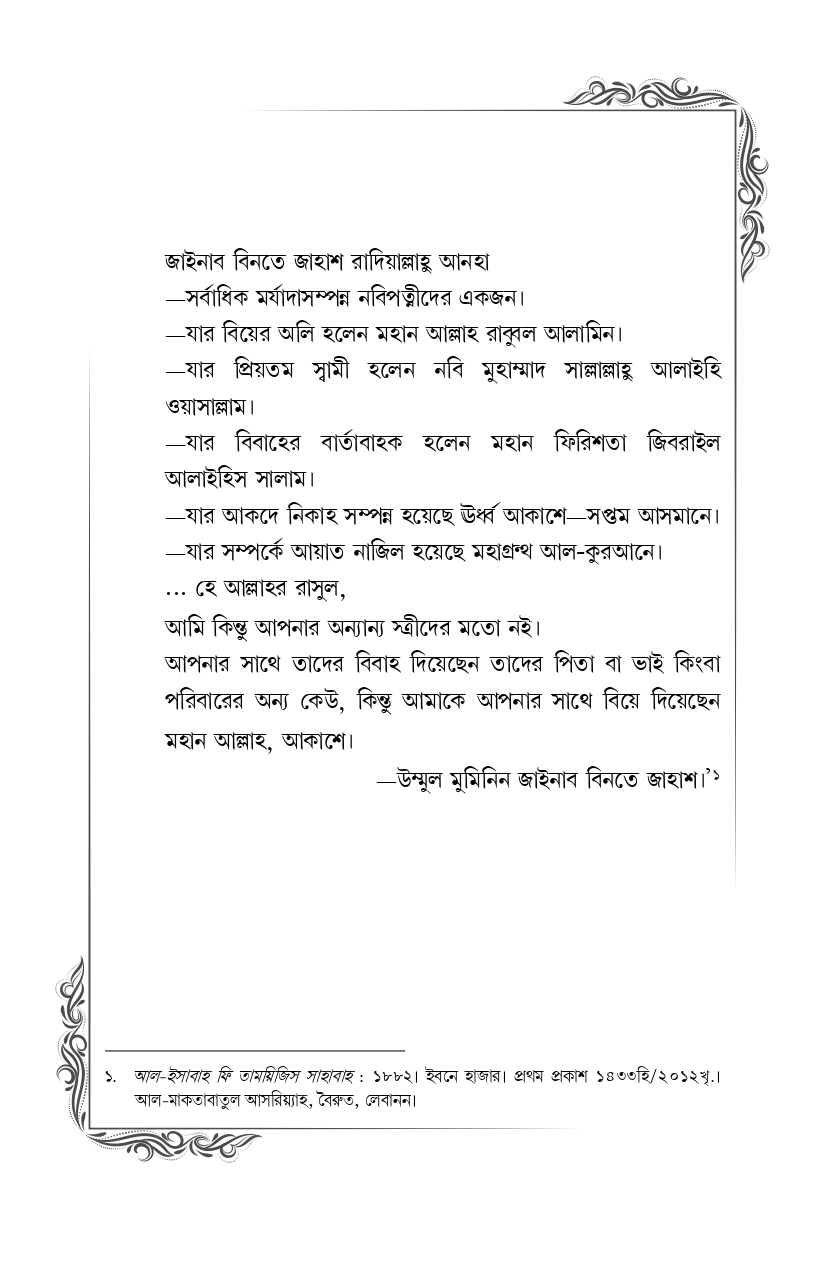 জাইনাব বিনতে জাহাশ রাদিয়াল্লাহু আনহা
—সর্বাধিক মর্যাদাসম্পন্ন নবিপত্নীদের একজন।
—যার বিয়ের অলি হলেন মহান আল্লাহ রাব্বুল আলামিন।
—যার প্রিয়তম স্বামী হলেন নবি মুহাম্মাদ সাল্লাল্লাহু আলাইহি
ওয়াসাল্লাম।
—যার বিবাহের বার্তাবাহক হলেন মহান ফিরিশতা জিবরাইল
আলাইহিস সালাম।
—যার আকদে নিকাহ সম্পন্ন হয়েছে ঊর্ধ্ব আকাশে—সপ্তম আসমানে।
—যার সম্পর্কে আয়াত নাজিল হয়েছে মহাগ্রন্থ আল-কুরআনে।
... হে আল্লাহর রাসুল,
আমি কিন্তু আপনার অন্যান্য স্ত্রীদের মতো নই।
আপনার সাথে তাদের বিবাহ দিয়েছেন তাদের পিতা বা ভাই কিংবা
পরিবারের অন্য কেউ, কিন্তু আমাকে আপনার সাথে বিয়ে দিয়েছেন
মহান আল্লাহ, আকাশে।
—উম্মুল মুমিনিন জাইনাব বিনতে জাহাশ।’১
১. আল-ইসাবাহ ফি তাময়িজিস সাহাবাহ : ১৮৮২। ইবনে হাজার। প্রথম প্রকাশ ১৪৩৩হি/২০১২খৃ.।
আল-মাকতাবাতুল আসরিয়্যাহ, বৈরুত, লেবানন।